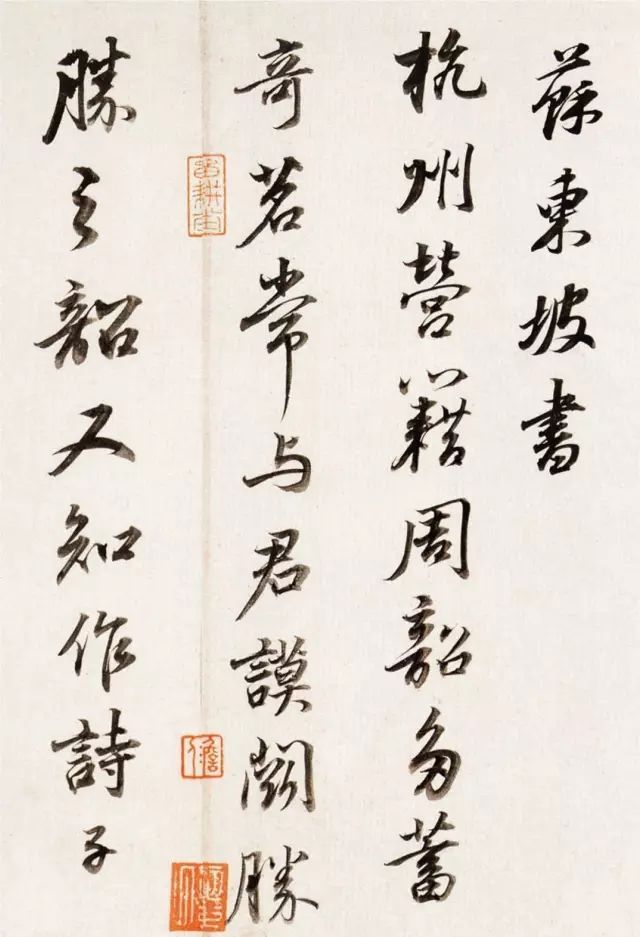 蘇東坡書
杭州營籍周韶多蓄
奇茗常与君謨鬪勝
勝之韶又知作詩子